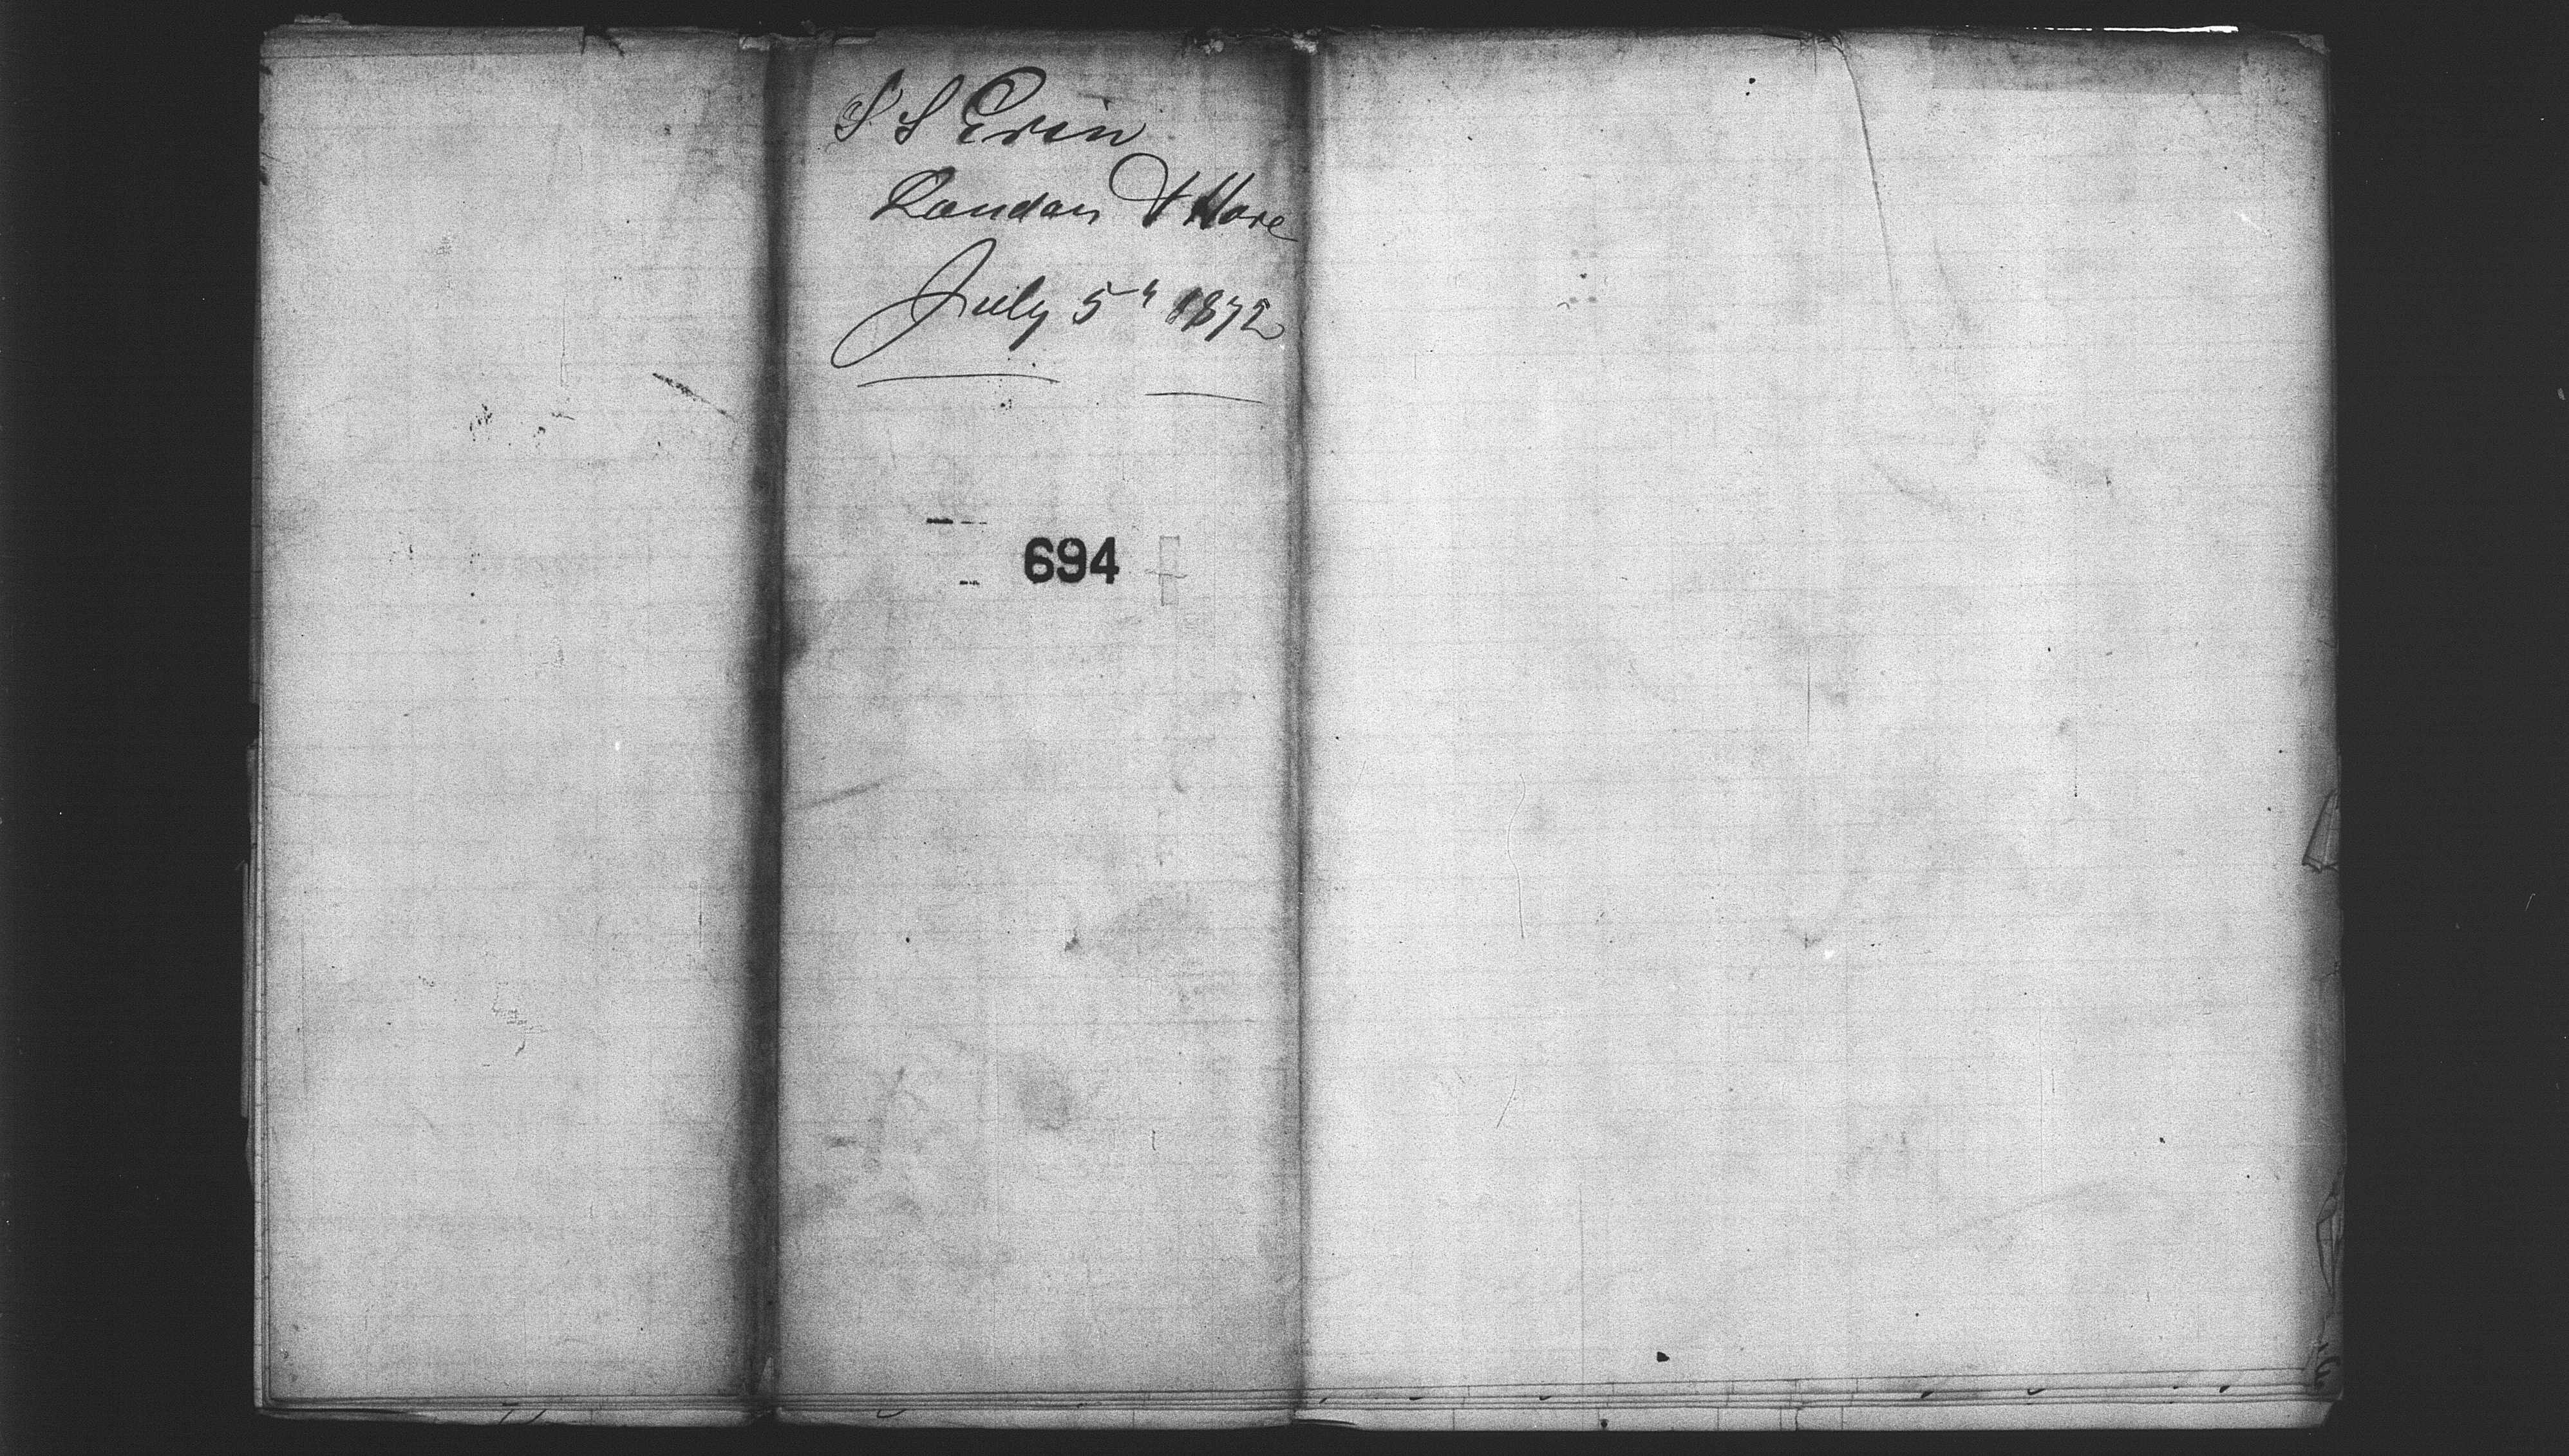 S S Erin
London & Havre
July 5th 1872
694